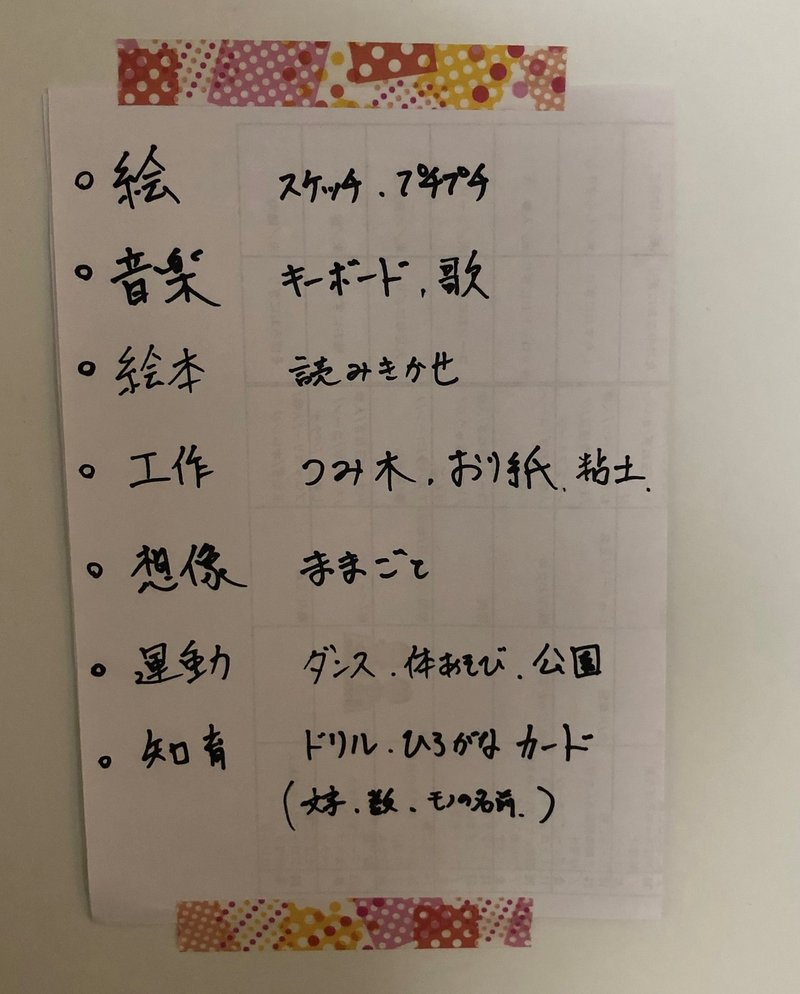 ○ 絵 スケッチ、プチプチ
○ 音楽 キーボード、歌
○ 絵本 読みきかせ
○ 工作 つみ木、おり紙、粘土、
○ 想像 ままごと
○ 運動 ダンス、体あそび、公園
○ 知育 ドリル、ひらがなカード
（文字、数、モノの名前、）